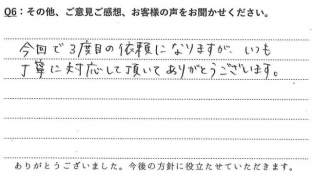 Q6：その他、ご意見ご感想、お客様の声をお聞かせください。
今回で3度目の依頼になりますが、いつも
丁寧に対応して頂いてありがとうございます。
ありがとうございました。今後の方針に役立たせていただきます。